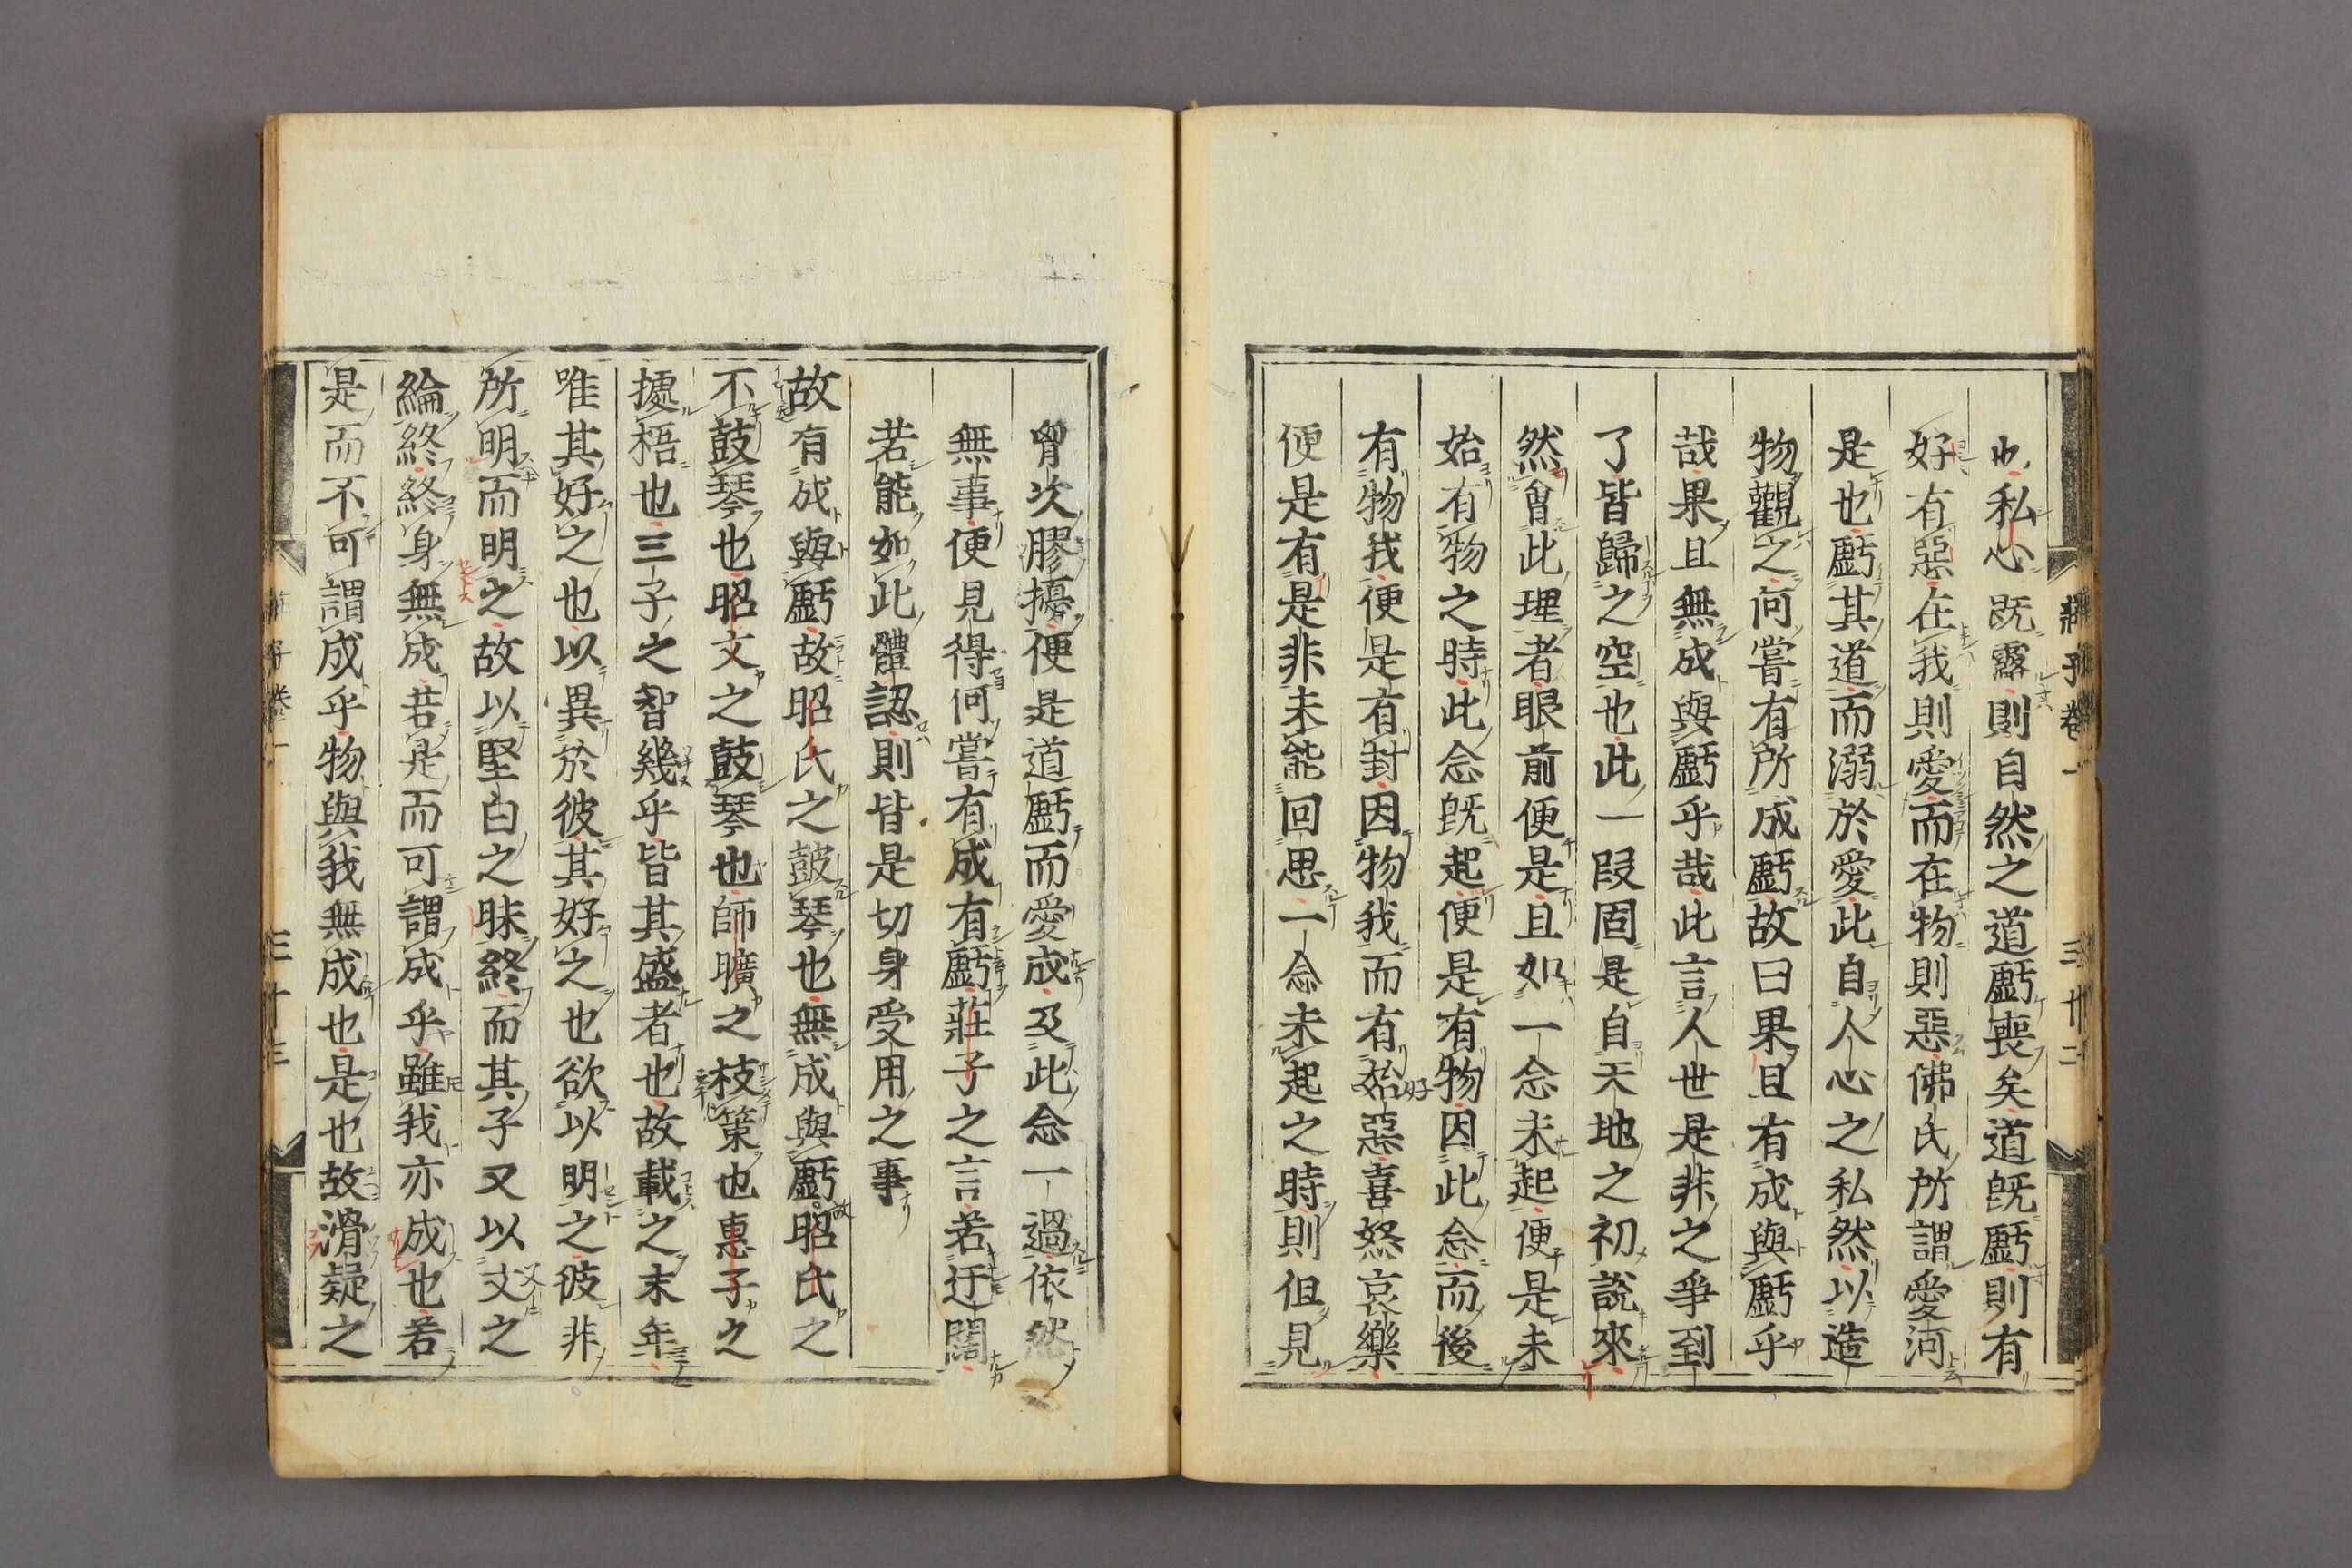 莊子卷一 三十二
也私心旣露則自然之道虧喪矣道旣虧則有
好有惡在我則愛而在物則惡佛氏所謂愛河
是也虧其道而溺於愛此自人心之私然以造
物觀之何嘗有所成虧故曰果且有成與虧乎
哉果且無成與虧乎哉此言人世是非之爭到
了皆歸之空也此一段固是自天地之初說來
然會此理者眼前便是且如一念未起便是未
始有物之時此念旣起便是有物因此念而後
有物我便是有封因物我而有始惡喜怒哀樂
便是有是非未能回思一念未起之時則但見
胷次膠擾便是道虧而愛成及此念一過依然
無事便見得何嘗有成有虧莊子之言若迂闊
若能如此體認則皆是切身受用之事
故有成與虧故昭氏之鼓琴也無成與虧故昭氏之
不鼓琴也昭文之鼓琴也師曠之枝策也惠子之
據梧也三子之智幾乎皆其盛者也故載之末年
唯其好之也以異於彼其好之也欲以明之彼非
所明而明之故以堅白之昧終而其子又以文之
綸終終身無成若是而可謂成乎雖我亦成也若
是而不可謂成乎物與我無成也是也故滑疑之
莊子卷一 三十三